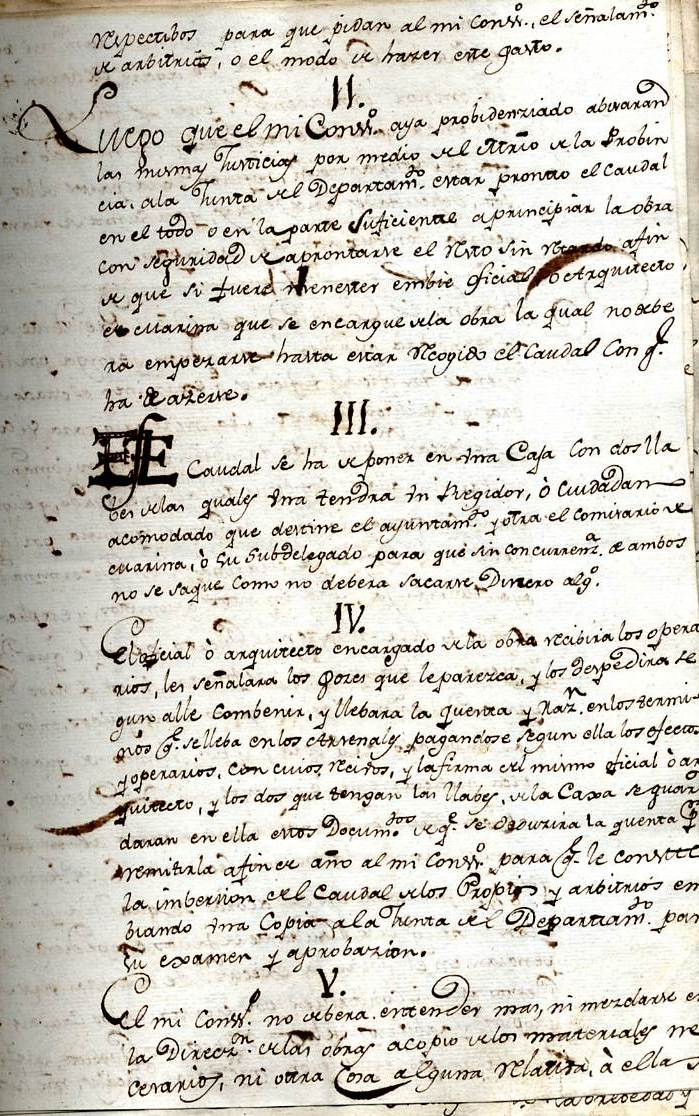 respectibos para que pidan al mi Consº. el señalamtº.
de arbitrios, o el modo de hazer este gasto.
II.
Luego que el mi Consº. aya probidenziado abisaran
las mismas Justicias por medio del Mtrio de la Probin
cia, ala Junta del Departamtº. estar promto el Caudal
en el todo o en la parte suficiente a principiar la obra
con seguridad de aprontarse el resto sin retardo afin
de que si fuere menester embie oficial, o Arquitecto
de marina que se encargue dela obra la qual no debe
ra empezarse hasta estar recogido el Caudal Con q.
ha de azerse.
III.
Este Caudal se ha de poner en vna Casa Con dos lla
bes delas quales vna tendra vn Regidor, ò Ciudadano
acomodado que destine el ayuntamtº. y otra el Comisario de
marina, ò su Subdelegado para que sin concurrenzª. de ambos
no se saque como no debera sacarse Dinero algº.
IV.
El oficial ò arquitecto encargado dela obra recibira los opera
rios, les señalara los Gozes que le parezca, y los despedira se
gun alle Combenir, y llebara la quenta y Razn. enlos termi-
nos q. se lleba en los Arsenales pagandose segun ella los efectos
y operarios, con cuios recivos, y la firma del mismo oficial ò ar
quitecto, y los dos que tengan las llabes, dela Caxa se guar
daran en ella estos Documtos de q. se deduzira la quenta
remitirla afin de año al mi Consº. para q. le conste
la imbersion del Caudal delos Propios y arbitrios em
biando vna Copia ala Junta del Departamtº. para
su examen y aprobazion.
V.
El mi Consº. no debera entender mas, ni mezclarse en
la Direczn. delas obras acopio delos materiales ne
cesarios, ni otra Cosa alguna relatiba, à ella
la brebedad y